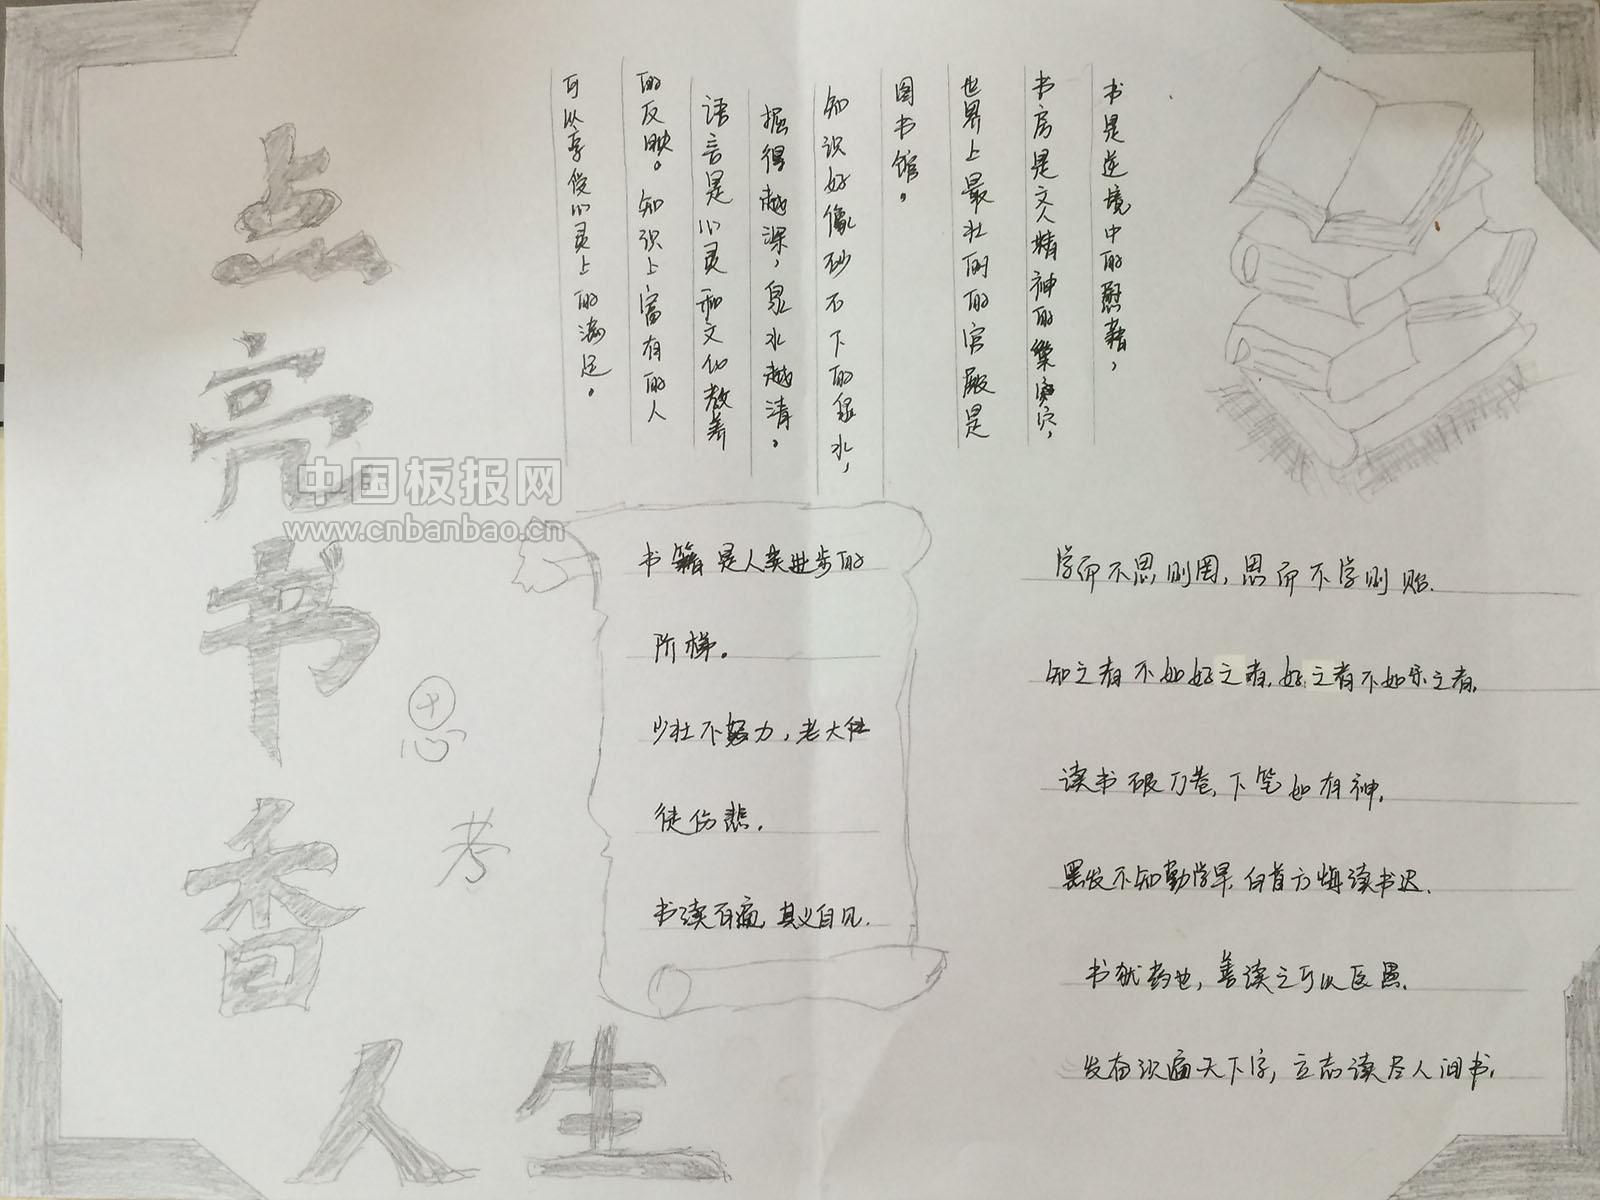 点亮书香
人生
思
考
书是逆境中的慰藉，
书房是文人精神的巢穴，
世界上最壮丽的宫殿是
图书馆。
知识好像砂石下的泉水，
掘得越深，泉水越清。
语言是心灵和文化教养
的反映。知识上富有的人
可以享受心灵上的满足。
中国板报网
www.cnbanbao.cn
书籍是人类进步的
阶梯。
少壮不努力，老大
徒伤悲。
书读百遍，其义自见。
学而不思则罔，思而不学则殆。
知之者不如好之者，好之者不如乐之者。
读书破万卷，下笔如有神。
黑发不知勤学早，白首方悔读书迟。
书犹药也，善读之可以医愚。
发奋识遍天下字，立志读尽人间书。